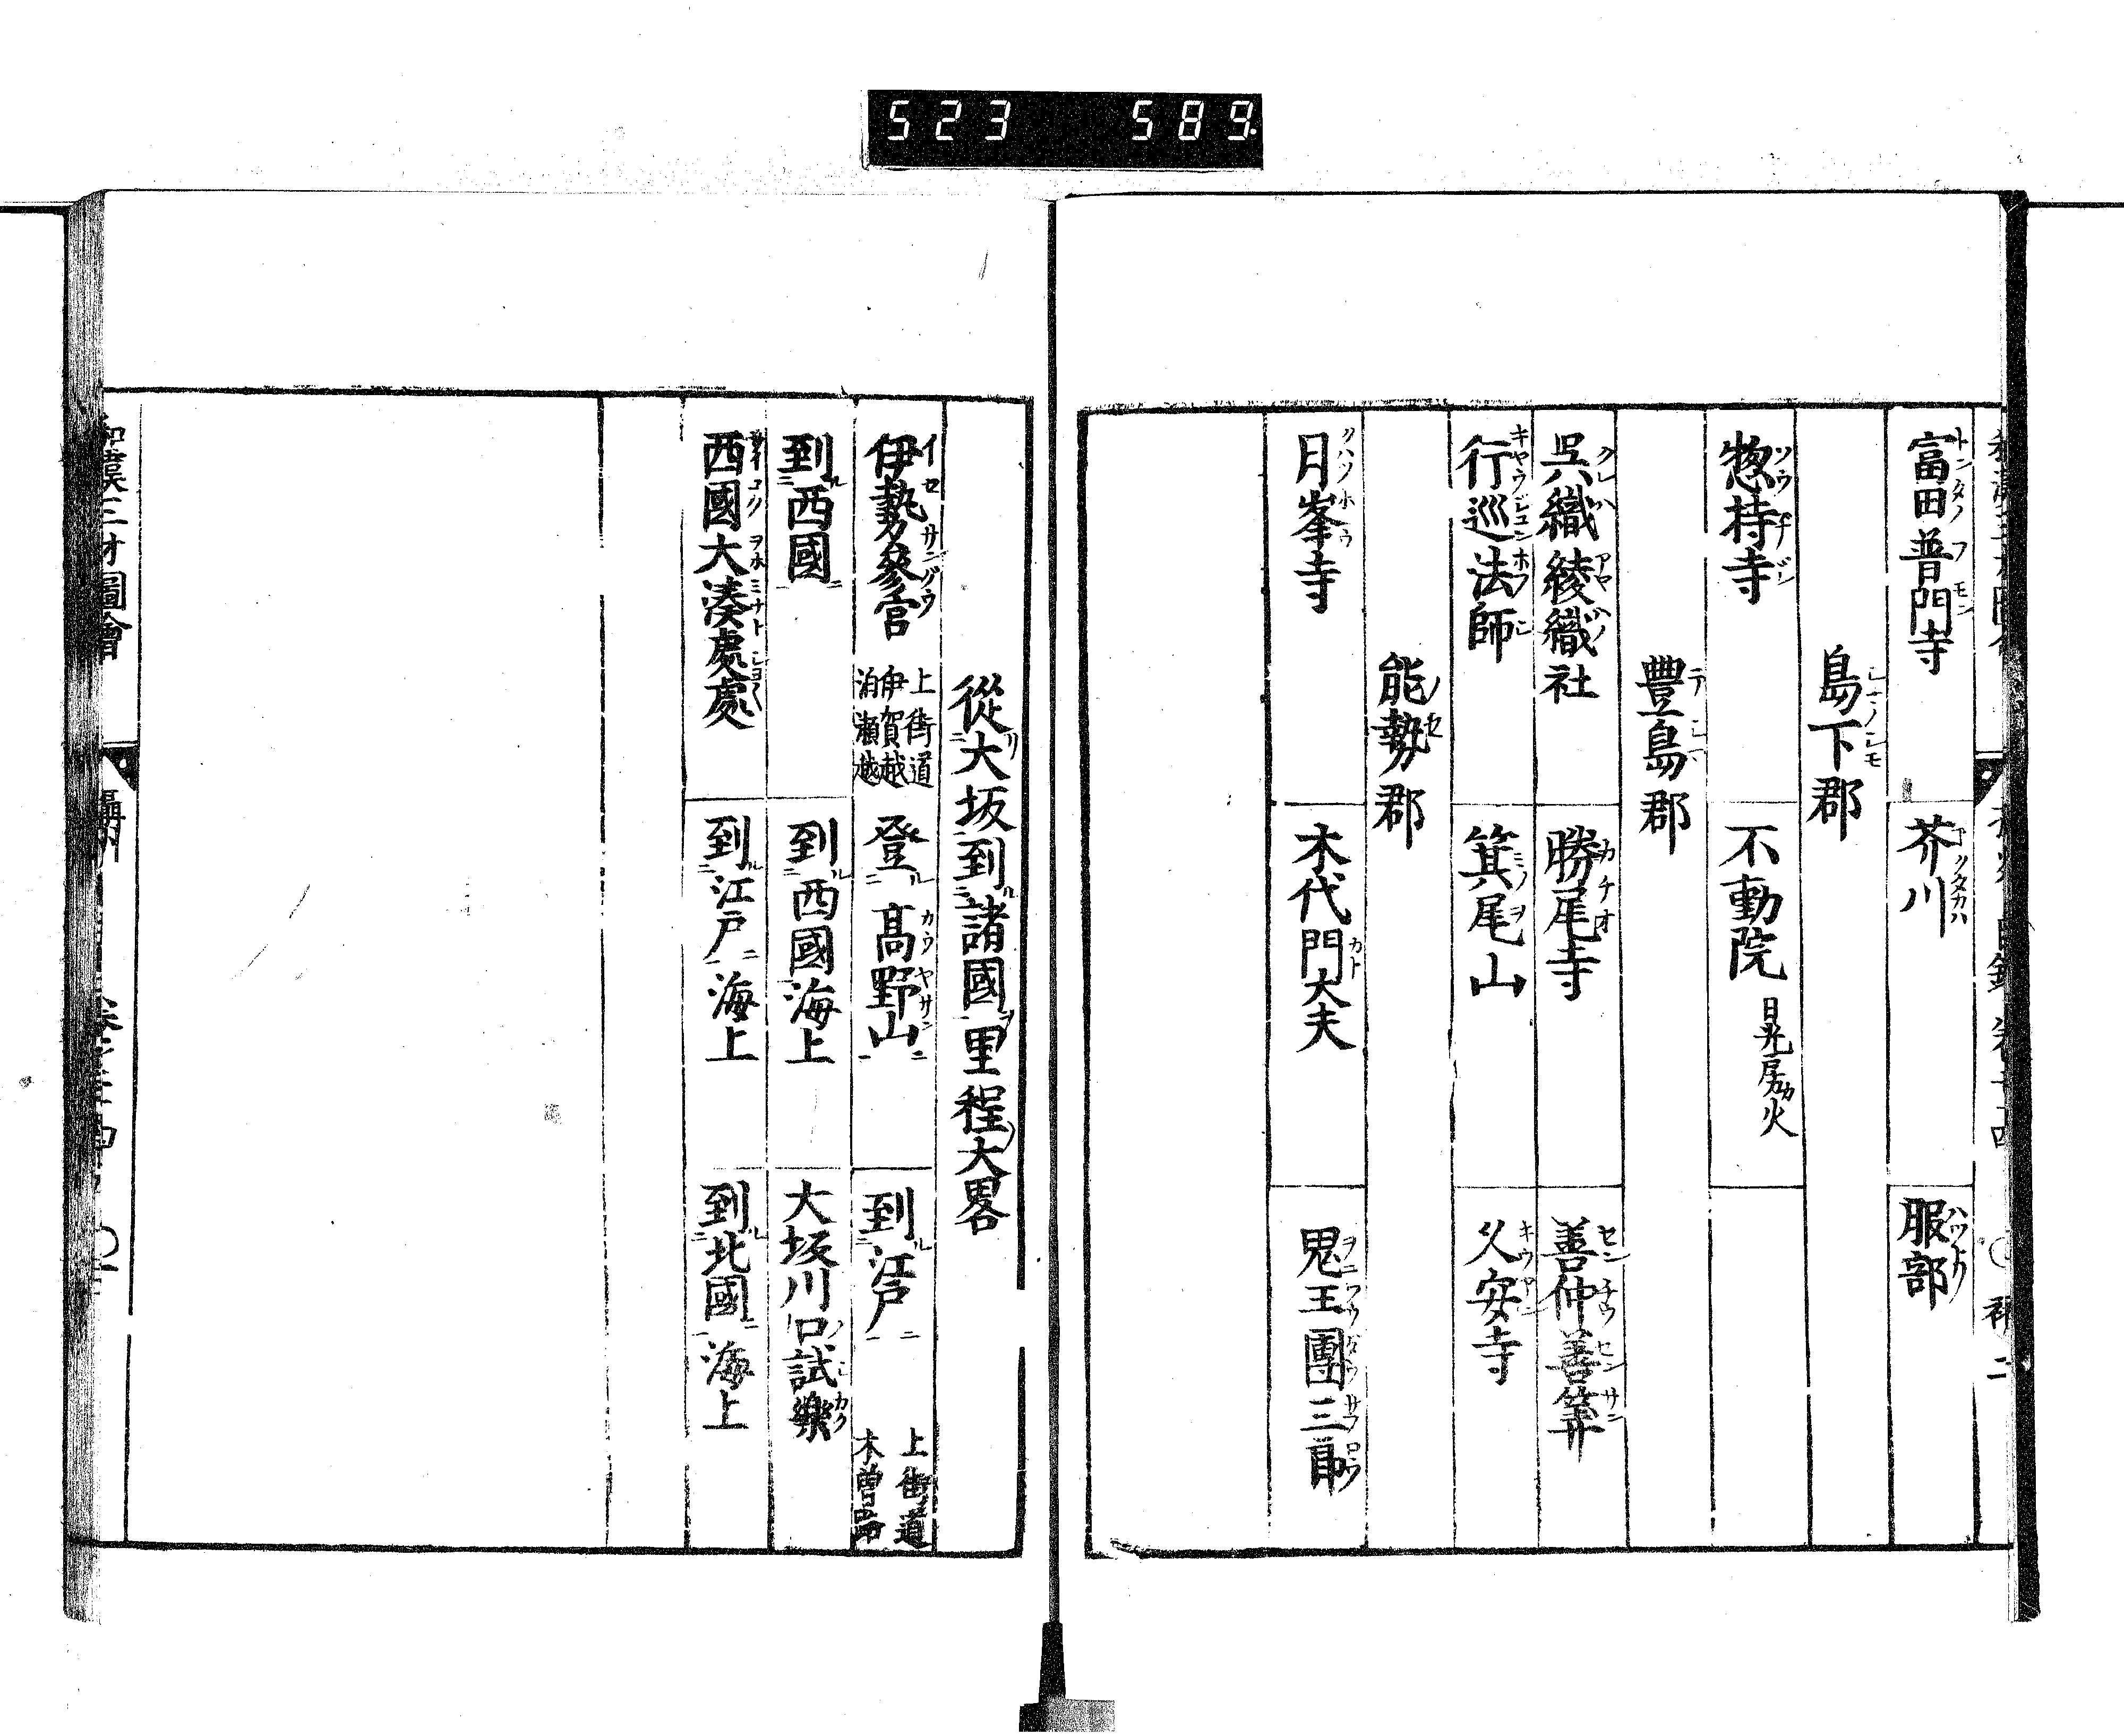 523 589
富田普門寺 芥川 服部
島下郡
惣持寺 不動院 日光房カ火
豐島郡
呉織綾織社 勝尾寺 善仲善算
行巡法師 箕尾山 久安寺
能勢郡
月峯寺 木代門大夫 鬼王團三郎
從大坂到諸國里程大畧
伊勢參宮 上街道 伊賀越 泊瀬越 登高野山 到江戸 上街道 木曽路
到西國 到西國海上 大坂川口試樂
西國大湊處處 到江戸海上 到北國海上
和漢三才圖會 攝州